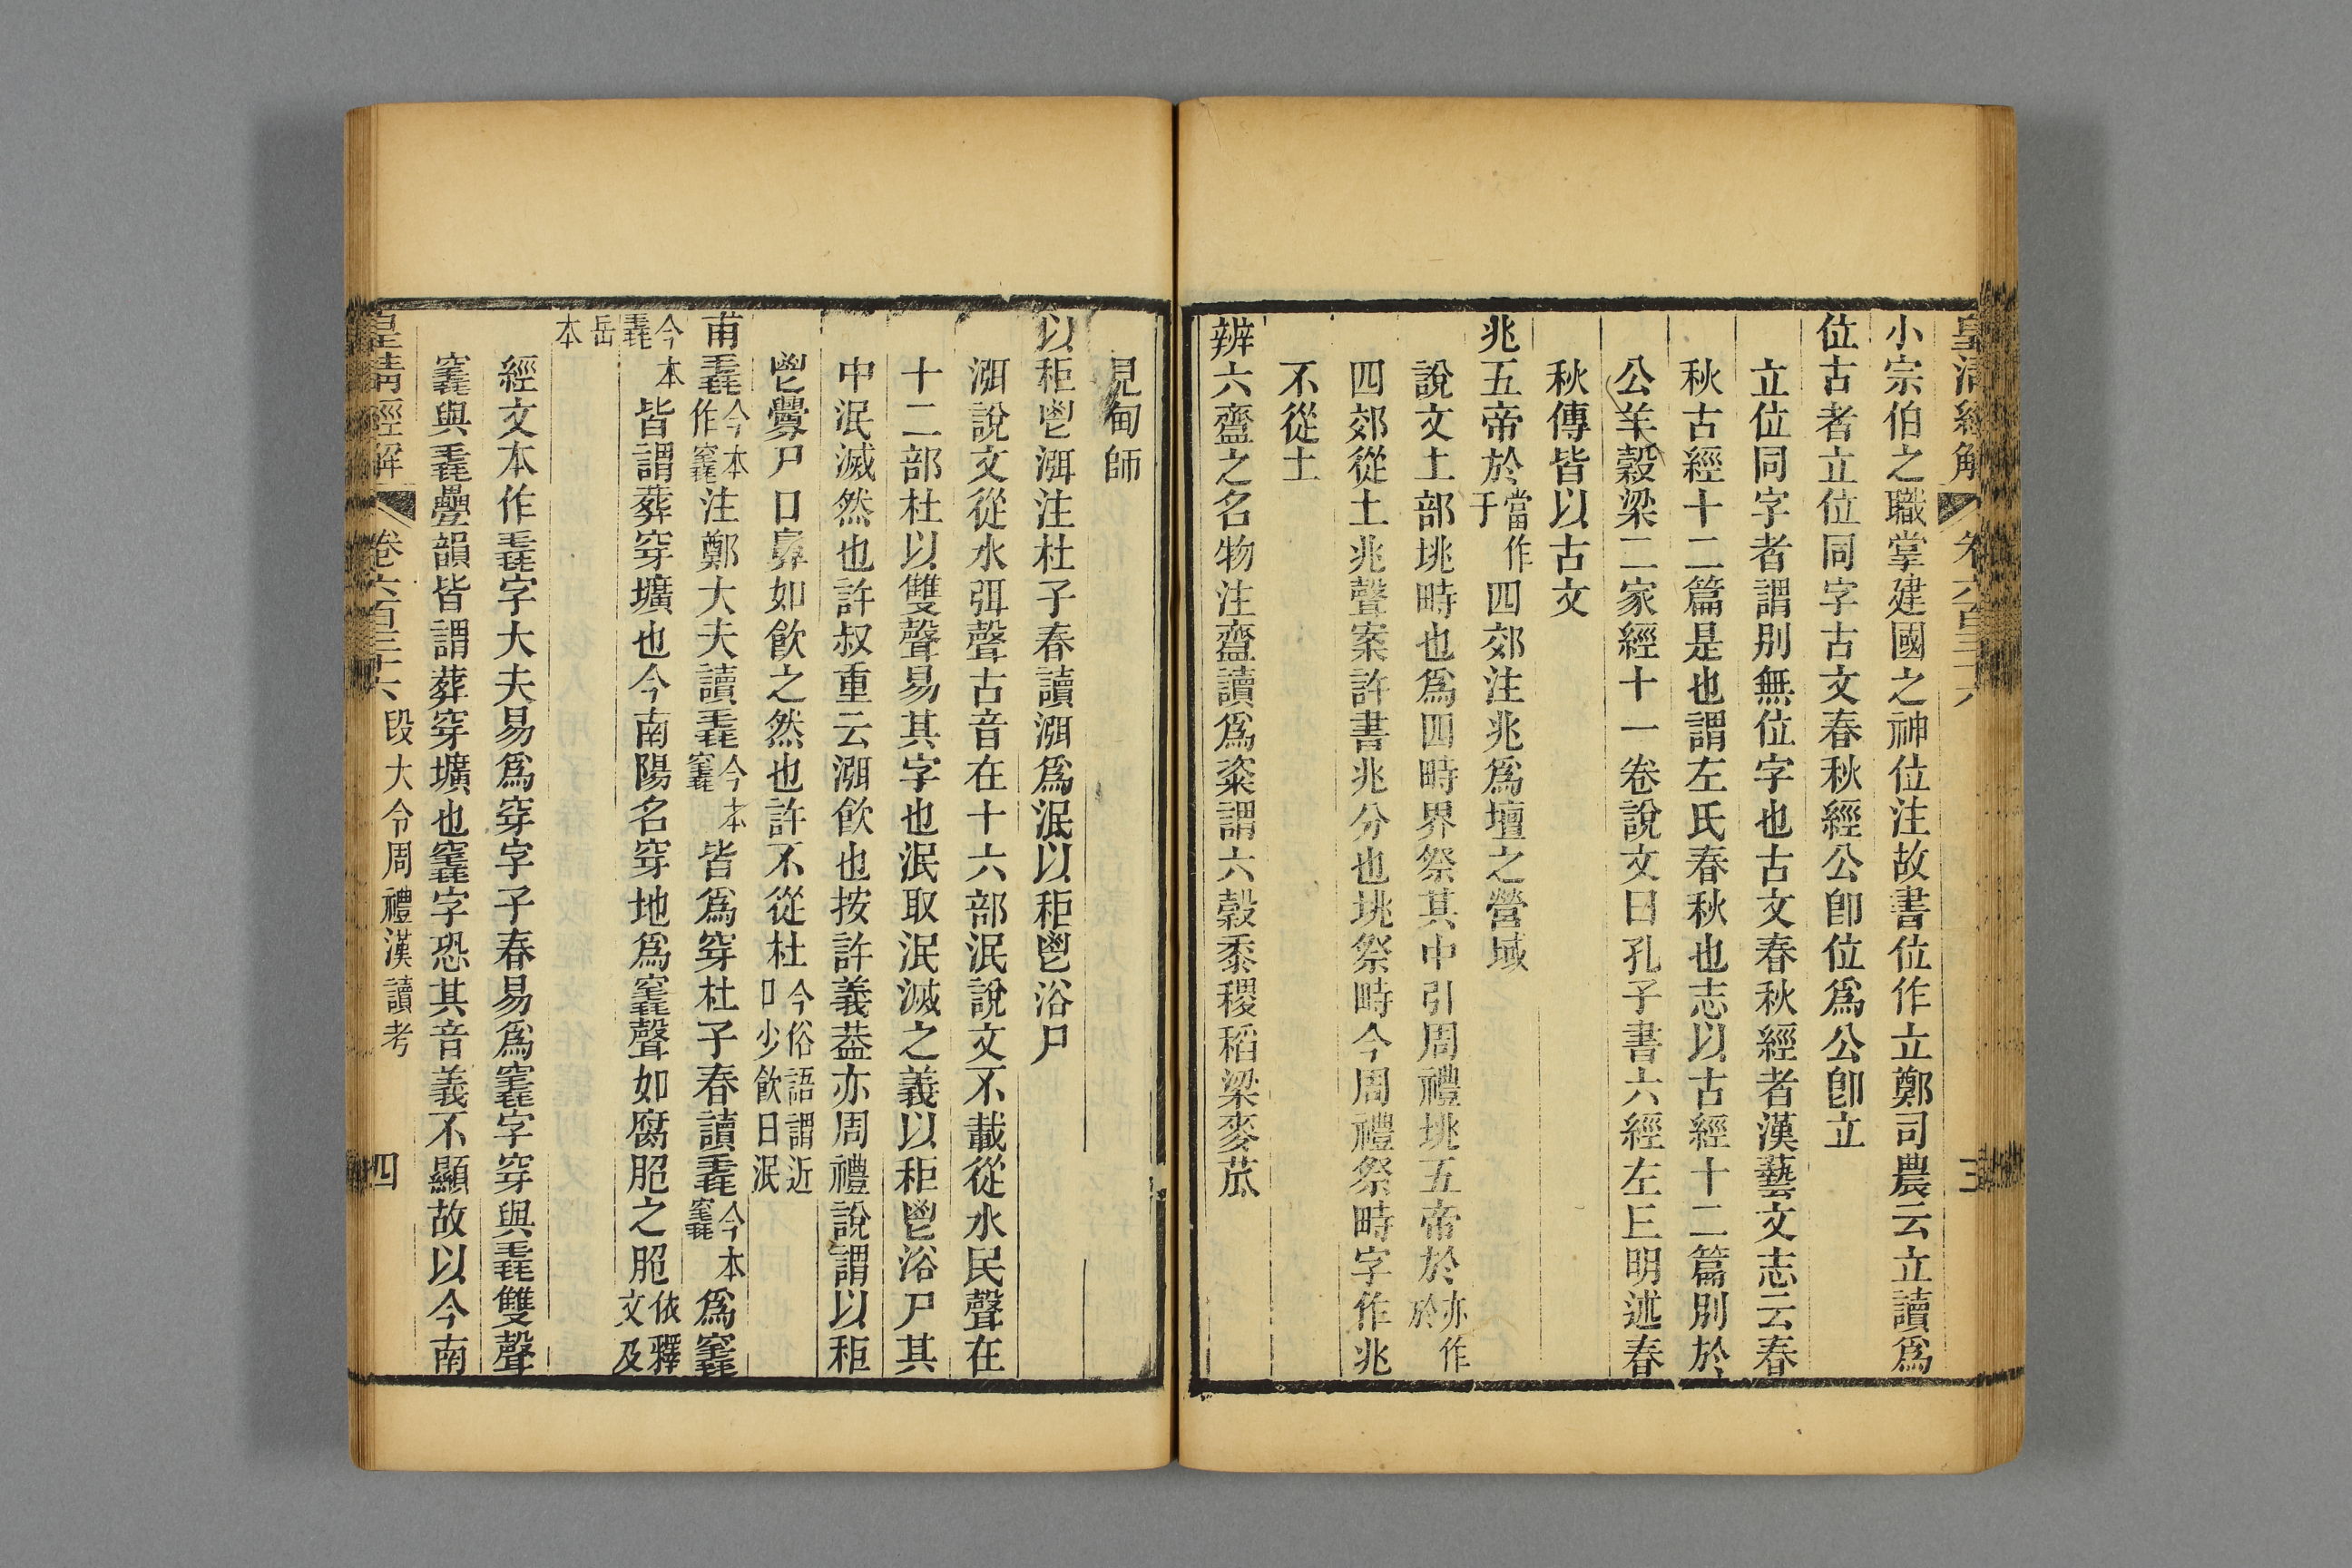 皇清經解 卷六百三十六 三
小宗伯之職掌建國之神位注故書位作立鄭司農云立讀爲
位古者立位同字古文春秋經公卽位爲公卽立
立位同字者謂別無位字也古文春秋經者漢藝文志云春
秋古經十二篇是也謂左氏春秋也志以古經十二篇別於
公羊穀梁二家經十一卷說文曰孔子書六經左丘明述春
秋傳皆以古文
兆五帝於當作于四郊注兆爲壇之營域
說文土部垗畤也爲四畤界祭其中引周禮垗五帝於亦作於
四郊從土兆聲案許書兆分也垗祭畤今周禮祭畤字作兆
不從土
辨六齍之名物注齍讀爲粢謂六穀黍稷稻粱麥苽
見甸師
以秬鬯渳注杜子春讀渳爲泯以秬鬯浴尸
渳說文從水弭聲古音在十六部泯說文不載從水民聲在
十二部杜以雙聲易其字也泯取泯滅之義以秬鬯浴尸其
中泯滅然也許叔重云渳飮也按許義葢亦周禮說謂以秬
鬯釁尸口鼻如飮之然也許不從杜今俗語謂近口少飮曰泯
甫毳今本作竁注鄭大夫讀毳今本竁皆爲穿杜子春讀毳今本竁爲竁
今本毳皆謂葬穿壙也今南陽名穿地爲竁聲如腐脃之脃依釋文及
岳本
經文本作毳字大夫易爲穿字子春易爲竁字穿與毳雙聲
竁與毳疊韻皆謂葬穿壙也竁字恐其音義不顯故以今南
皇清經解 卷六百三十六 段大令周禮漢讀考 四